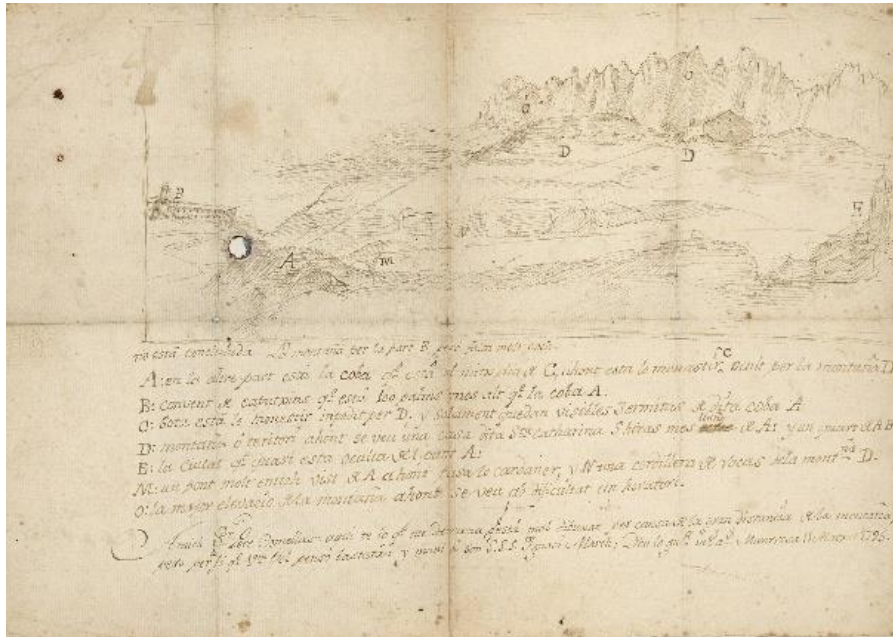 B
O
C
D
D
E
A
M
no está concluhida La montaña per la part B pero falta molt poch.
A: en la altre part está la coba qe. está al mitx dia de C, ahont esta lo monastir, ocult per la montaña D
B: convent de caputxins qe. está 100 palms mes alt qe. la coba A.
C: Sota esta lo monestir per D. y solament quedan visibles 3 ermitas de dita coba A
D: montaña o teritori ahont se veu una casa dita Sta. Catharina 3 horas mes de A: y un quart de A B
E: la Ciutat qe. quasi esta oculta de A:
M: un pont molt vist de A ahont pasa lo cardaner, y N una cordillera de rocas de la montña. D.
O: la major elevació de la montaña ahont se veu ab dificultat un horatori.
Amich Sor. Pere aqui te lo qe. me demana, está mal dibuxat per causa de la gran distancia de la montaña
pero per lo qe. Vm. vol penso bastará y mani a son S.S.S. Ignaci March; Deu lo gue. ms. as. Manresa 11 1795.